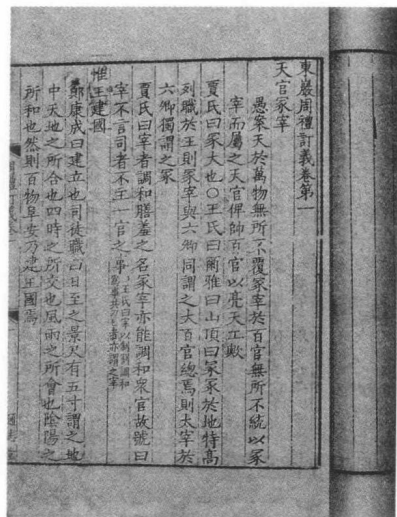 東巖周禮訂義卷第一
天官冢宰
愚案天於萬物無所不覆冢宰於百官無所不統以冢
宰而屬之天官俾帥百官以亮天工歟
賈氏曰冢大也○王氏曰爾雅曰山頂曰冢冢於地特高
列職於王則冢宰與六卿同謂之大百官總焉則大宰於
六卿獨謂之冢
賈氏曰宰者調和膳羞之名冢宰亦能調和衆官故號曰
宰不言司者不主一官之事
王氏曰宰以制割調和
爲事共刀匕者亦謂之宰
惟王建國
鄭康成曰建立也司徒職曰日至之景尺有五寸謂之地
中天地之所合也四時之所交也風雨之所會也陰陽之
所和也然則百物阜安乃建王國焉